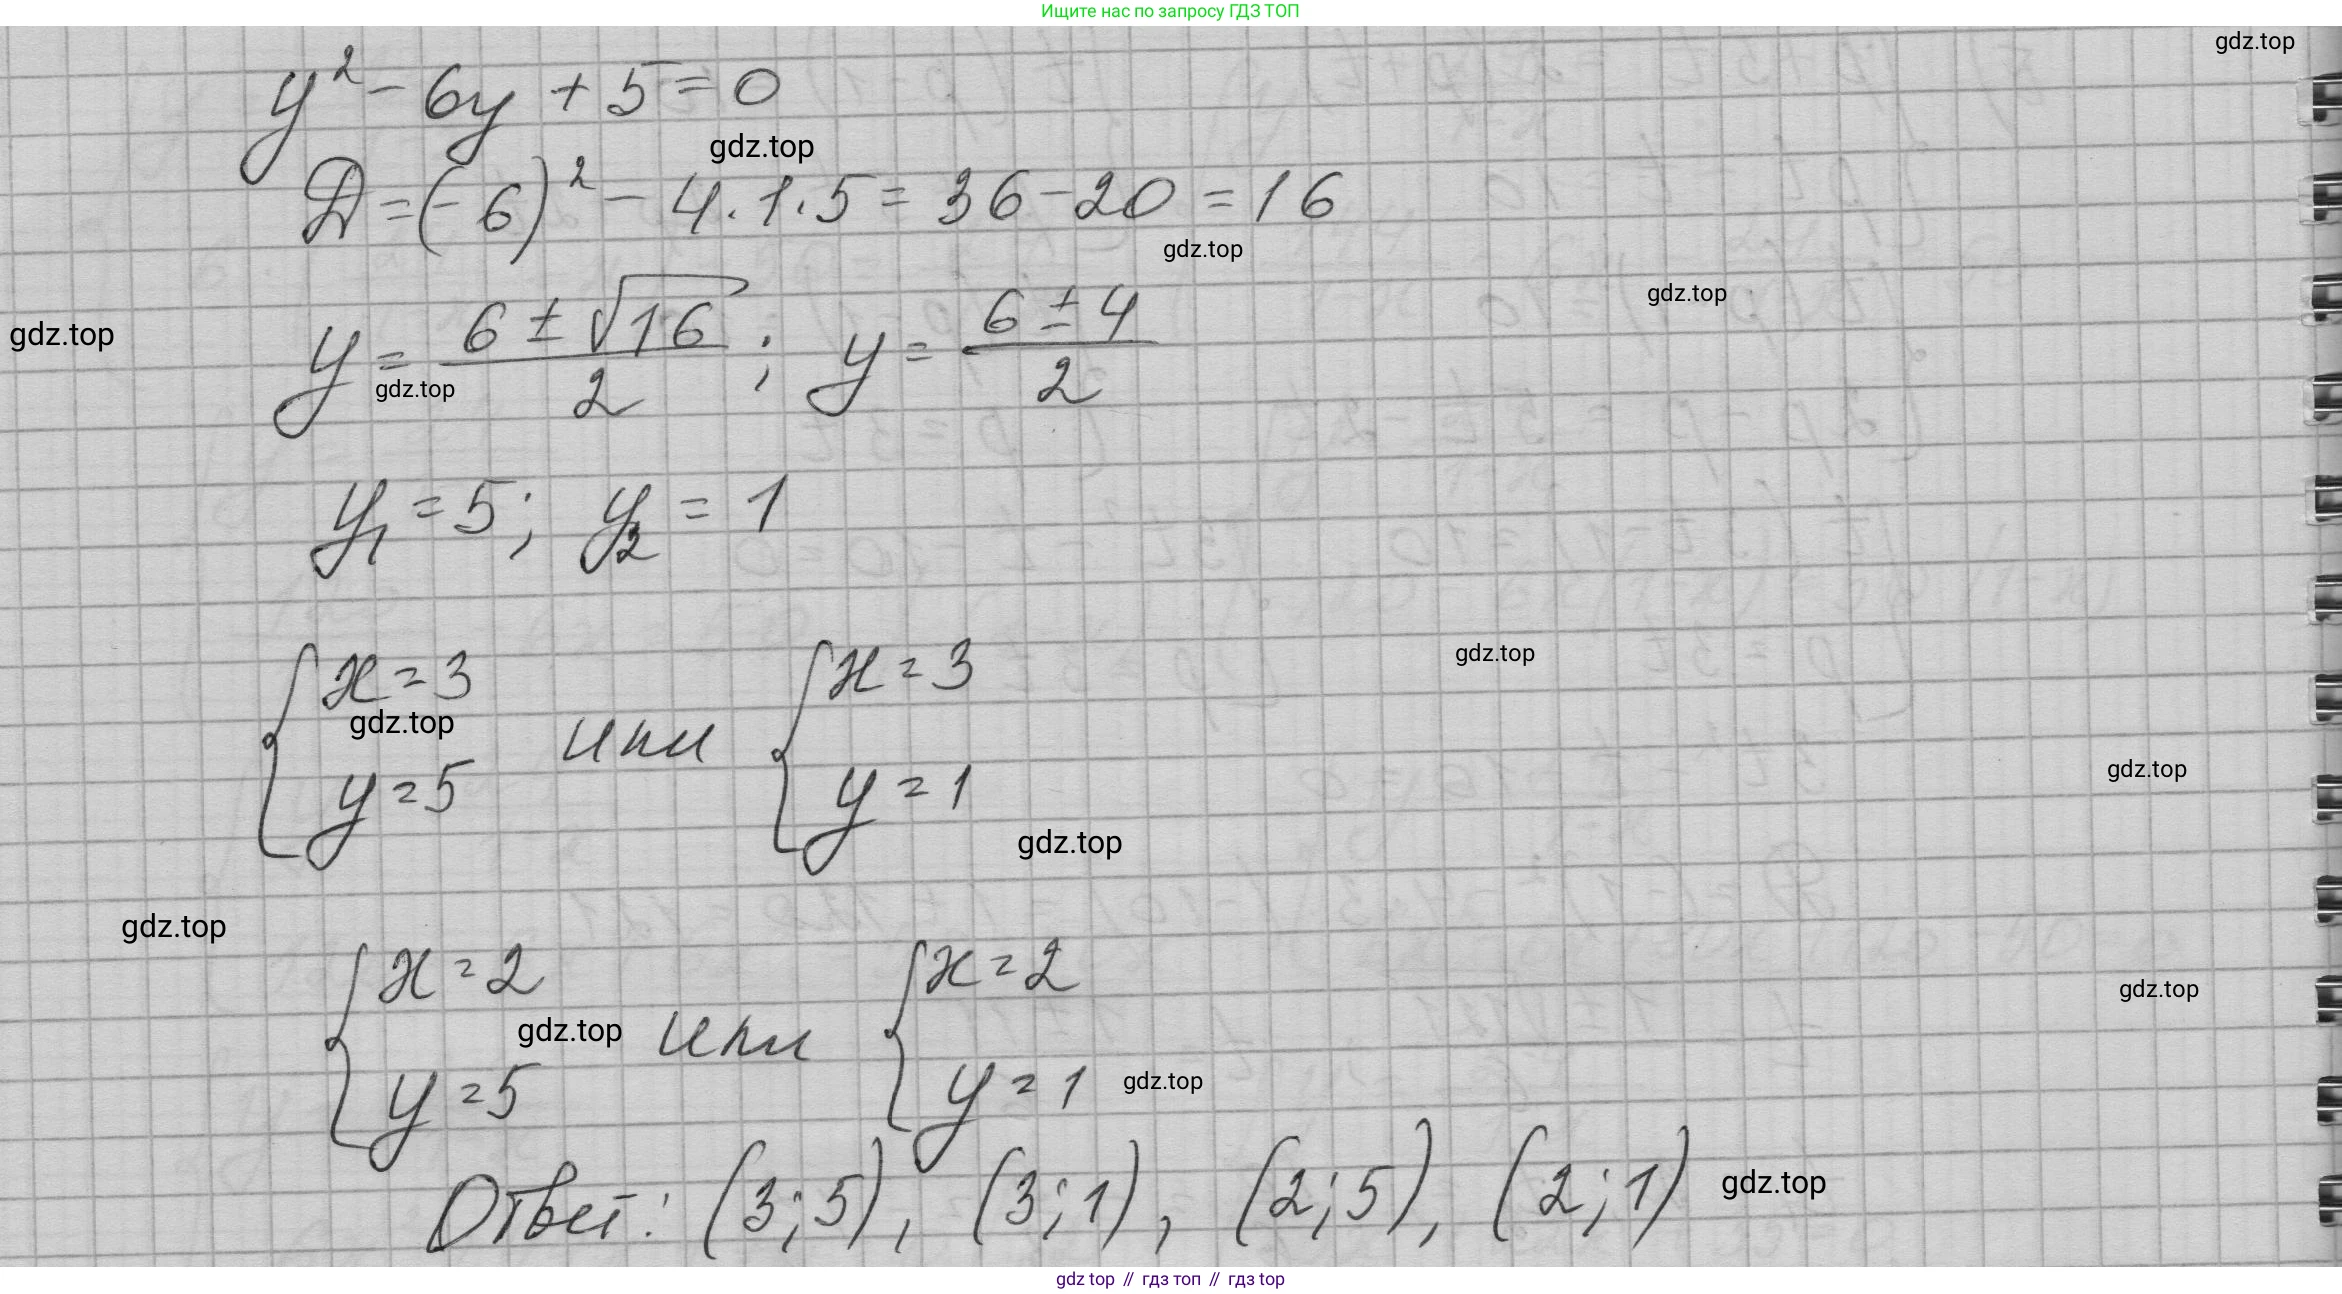 Ищите нас по запросу ГДЗ ТОП
gdz.top
y² - 6y + 5 = 0
gdz.top
D = (-6)² - 4·1·5 = 36 - 20 = 16
gdz.top
gdz.top
gdz.top
y = (6 ± √16)/2 ; y = (6 ± 4)/2
gdz.top
y₁ = 5; y₂ = 1
gdz.top
{x = 3 или {x = 3
gdz.top
gdz.top
y = 5 y = 1
gdz.top
gdz.top
{x = 2 или {x = 2
gdz.top
gdz.top
y = 5 y = 1
gdz.top
Ответ: (3; 5), (3; 1), (2; 5), (2; 1)
gdz.top
gdz top // гдз топ // гдз top